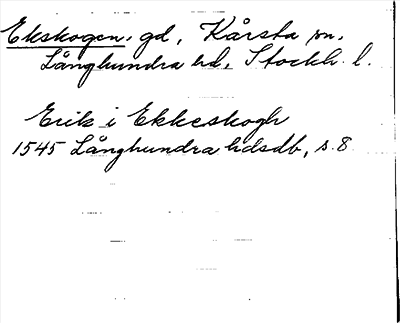 Ekskogen, gd, Kårsta sn,
Långhundra hd, Stockh. l.
Erik i Ekkeskogh
1545 Långhundra hdsdb, s. 8